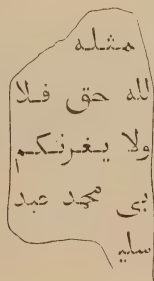 مثله
لله حق فلا
ولا يغرنكم
بى محمد عبد
سليه